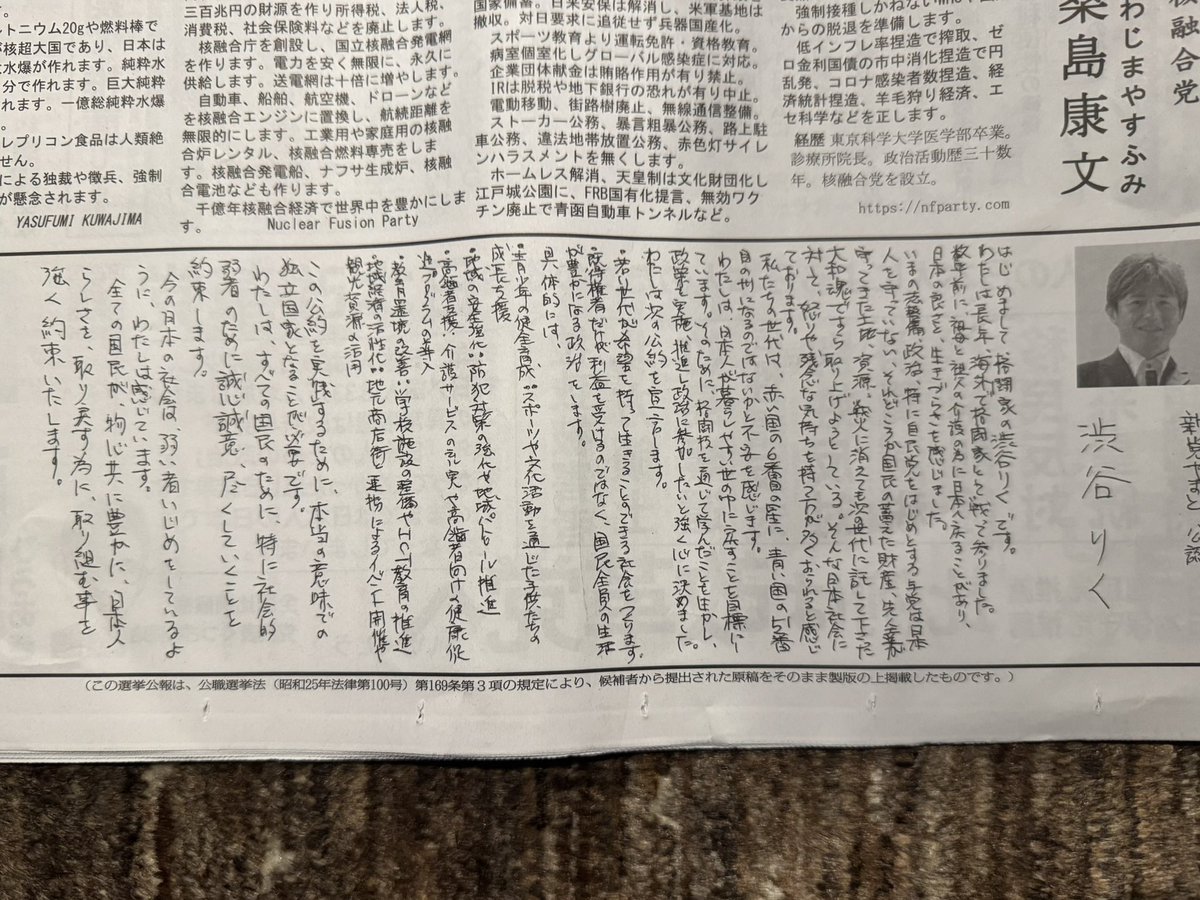 核融合党
わじまやすふみ
桑島康文
強制接種しかねないWHOや国連
からの脱退を準備します。
低インフレ率捏造で搾取、ゼ
ロ金利国債の市中消化捏造で円
乱発、コロナ感染者数捏造、経
済統計捏造、羊毛狩り経済、エ
セ科学などを正します。
経歴 東京科学大学医学部卒業。
診療所院長。政治活動歴三十数
年。核融合党を設立。
https://nfparty.com
国家備蓄。日米安保は解消し、米軍基地は
撤収。対日要求に追従せず兵器国産化。
スポーツ教育より運転免許・資格教育。
病室個室化しグローバル感染症に対応。
企業団体献金は賄賂作用が有り禁止。
IRは脱税や地下銀行の恐れが有り中止。
電動移動、街路樹廃止、無線通信整備。
ストーカー公務、暴言粗暴公務、路上駐
車公務、違法地帯放置公務、赤色灯サイレ
ンハラスメントを無くします。
ホームレス解消、天皇制は文化財団化し
江戸城公園に、FRB国有化提言、無効ワク
チン廃止で青函自動車トンネルなど。
三百兆円の財源を作り所得税、法人税、
消費税、社会保険料などを廃止します。
核融合庁を創設し、国立核融合発電網
を作ります。電力を安く無限に、永久に
供給します。送電網は十倍に増やします。
自動車、船舶、航空機、ドローンなど
を核融合エンジンに置換し、航続距離を
無限的にします。工業用や家庭用の核融
合炉レンタル、核融合燃料専売をしま
す。核融合発電船、ナフサ生成炉、核融
合電池なども作ります。
千億年核融合経済で世界中を豊かにしま
す。
Nuclear Fusion Party
ルトニウム20gや燃料棒で
が核超大国であり、日本は
水爆が作れます。純粋水
分で作れます。巨大純粋
れます。一億総純粋水爆
。
レプリコン食品は人類絶
せん。
による独裁や徴兵、強制
が懸念されます。
YASUFUMI KUWAJIMA
新党やまと 公認
渋谷りく
はじめまして格闘家の渋谷りくです。
わたしは長年、海外で格闘家として戦って参りました。
数年前に、祖母と祖父の介護の為に日本へ戻ることがあり、
日本の良さと、生きづらさを感じました。
いまの政治は、特に自民党をはじめとする与党は日本
人を守っていない。それどころか国民の蓄えた財産、先人達が
守ってきた土地、資源、戦火に消えても次の世代に託して下さった
大和魂ですら取り上げようとしている。そんな日本社会に
対して、怒りや残念な気持ちを持つ方が多くおられると感じ
ております。
私たちの世代は、赤い国の6番目の星に、青い国の51番
目の州になるのではないかと不安を感じます。
わたしは、日本人が暮らしやすい世の中に戻すことを目標にし
ています。そのために、格闘技を通じて学んだことも生かし、
政策を実施、推進し政治に参加したいと強く心に決めました。
わたしは次の公約を宣言します。
・若い世代が希望を持って生きることのできる社会をつくります。
・既得権者だけが利益を受けるのではなく、国民全員の生活
が豊かになる政治をします。
具体的には、
・青少年の健全育成:スポーツや文化活動を通じた子供たちの
成長を支援
・地域の安全強化:防犯対策の強化や地域パトロール推進
・高齢者支援:介護サービスの充実や高齢者向けの健康促
進プログラムの導入
・教育環境の改善:学校施設の整備やICT教育の推進
・地域経済の活性化:地元商店街と連携によるイベント開催や
観光資源の活用
この公約を実践するために、本当の意味での
独立国家となることが必要です。
わたしは、すべての国民のために、特に社会的
弱者のために誠心誠意、尽くしていくことを
約束します。
今の日本の社会は、弱い者いじめをしているよ
うに、わたしは感じています。
全ての国民が、物心共に豊かに、日本人
らしさを、取り戻す為に、取り組む事を
強く約束いたします。
(この選挙公報は、公職選挙法(昭和25年法律第100号)第169条第3項の規定により、候補者から提出された原稿をそのまま製版の上掲載したものです。)